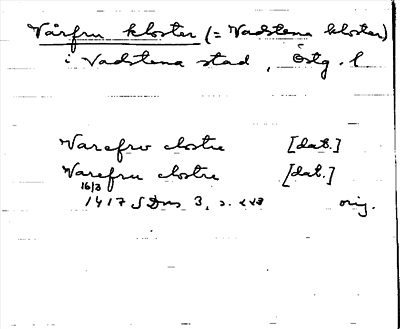 Vårfru kloster (= Vadstena kloster)
i Vadstena stad, Östg. l
Varefrv clostre [dat.]
Varefru clostre [dat.]
16/3
1417 SDns 3, s.
orig.